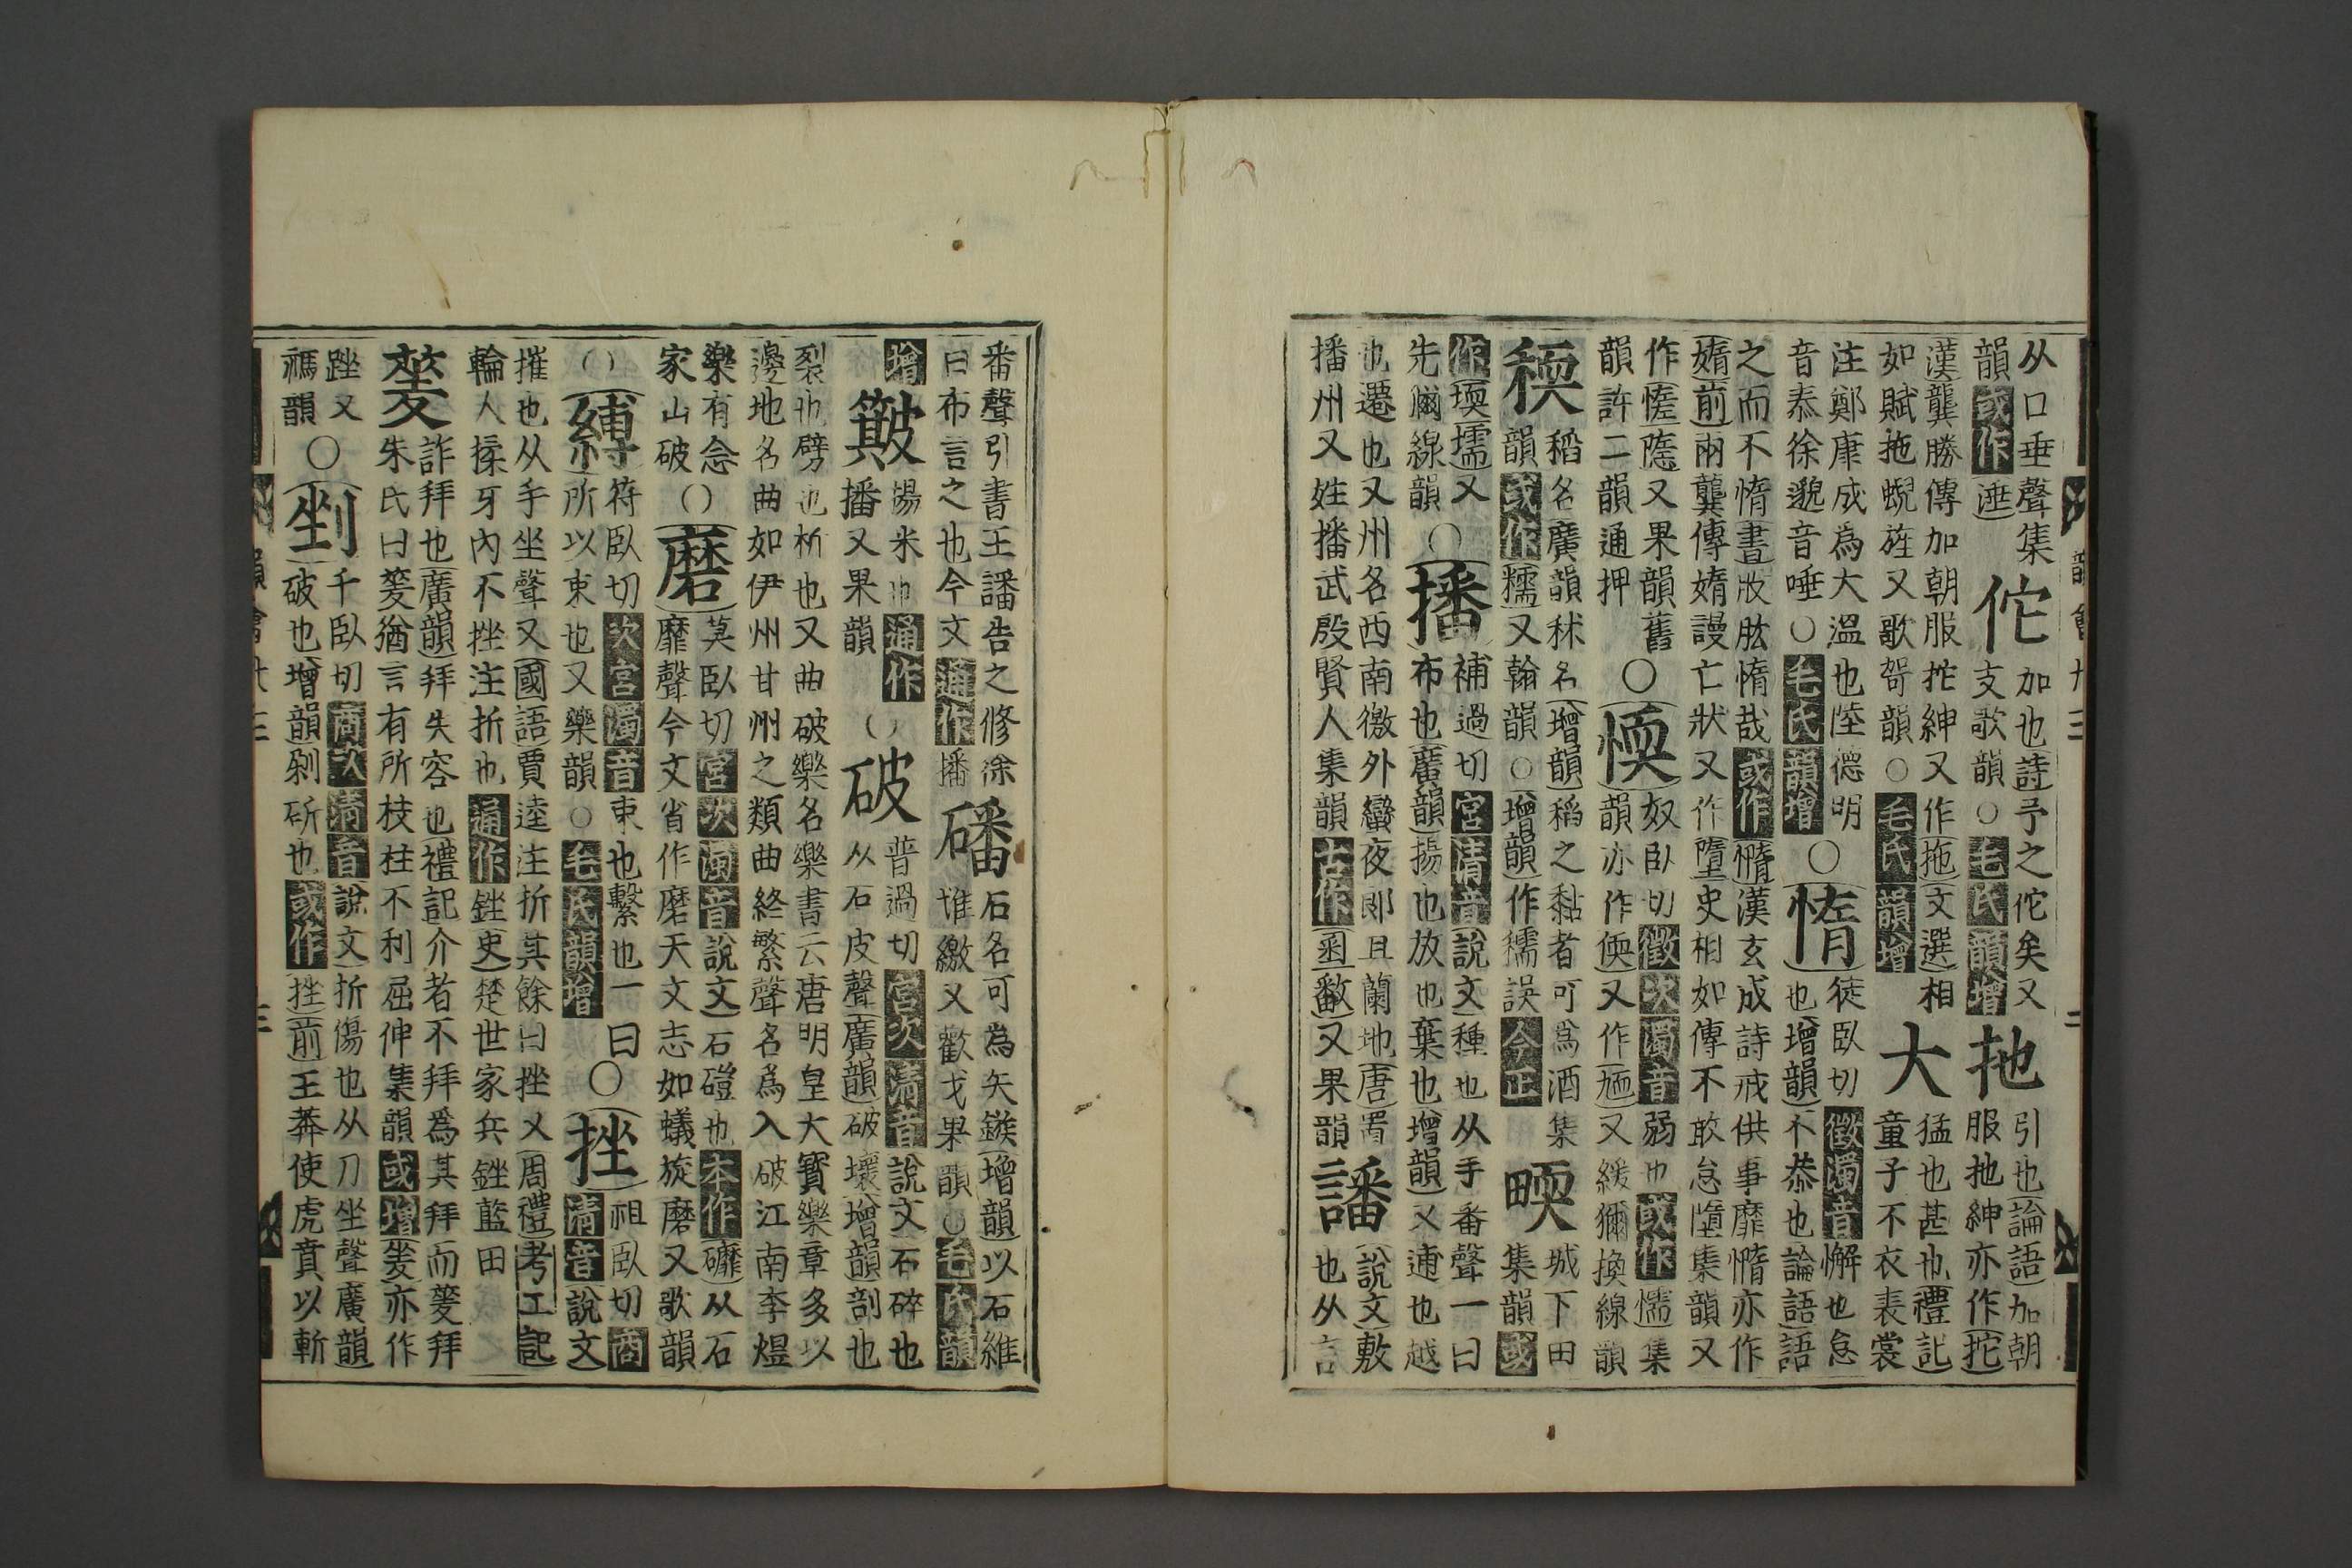 从口垂聲集韻或作涶佗加也詩予之佗矣又支歌韻○毛氏韻增扡引也論語加朝服扡紳亦作拕
漢龔勝傳加朝服拕紳又作拖文選相如賦拖蜺旌又歌哿韻○毛氏韻增大猛也甚也禮記童子不衣裘裳
注鄭康成為大温也陸德明音泰徐邈音唾○毛氏韻增○惰徒臥切徵濁音懈也怠也增韻不恭也論語語
之而不惰書股肱惰哉或作憜漢玄成詩戒供事靡憜亦作媠前兩龔傳媠謾亡狀又作墮史相如傳不敢怠墮集韻又
作又果韻舊韻許二韻通押○愞奴臥切徵次濁音弱也或作懦集韻亦作偄又作又緩獮換線韻
稬稻名廣韻秫名增韻稻之黏者可爲酒集韻或作糯又翰韻○增韻作穤誤今正㬉城下田集韻或
作堧壖又先獮線韻○播補過切宮清音說文種也从手番聲一曰布也廣韻揚也放也棄也增韻又逋也越
也遷也又州名西南徼外蠻夜郎且蘭地唐置播州又姓播武殷賢人集韻古作又果韻譒說文敷也从言
番聲引書王譒告之修徐曰布言之也今文通作播磻石名可為矢鏃增韻以石維惟繳又歡戈果韻○毛氏韻
增簸揚米也通作播又果韻○破普過切宮次清音說文石碎也从石皮聲廣韻破壞增韻剖也
裂也劈也析也又曲破樂名樂書云唐明皇大寶樂章多以邊地名曲如伊州甘州之類曲終繁聲名爲入破江南李煜
樂有念家山破○磨莫臥切宮次濁音說文石磑也本作䃺从石靡聲今文省作磨天文志如蟻旋磨又歌韻
○縛符臥切次宮濁音束也繫也一曰所以束也又藥韻○毛氏韻增○挫祖臥切商清音說文
摧也从手坐聲又國語賈逵注折其餘曰挫又周禮考工記輪人揉牙內不挫注折也通作銼史楚世家兵銼藍田
夎詐拜也廣韻拜失容也禮記介者不拜爲其拜而夎拜朱氏曰夎猶言有所枝柱不利屈伸集韻或增䂳亦作
䟶又禡韻○剉千臥切商次清音說文折傷也从刀坐聲廣韻破也增韻剁斫也或作挫前王莽使虎賁以斬